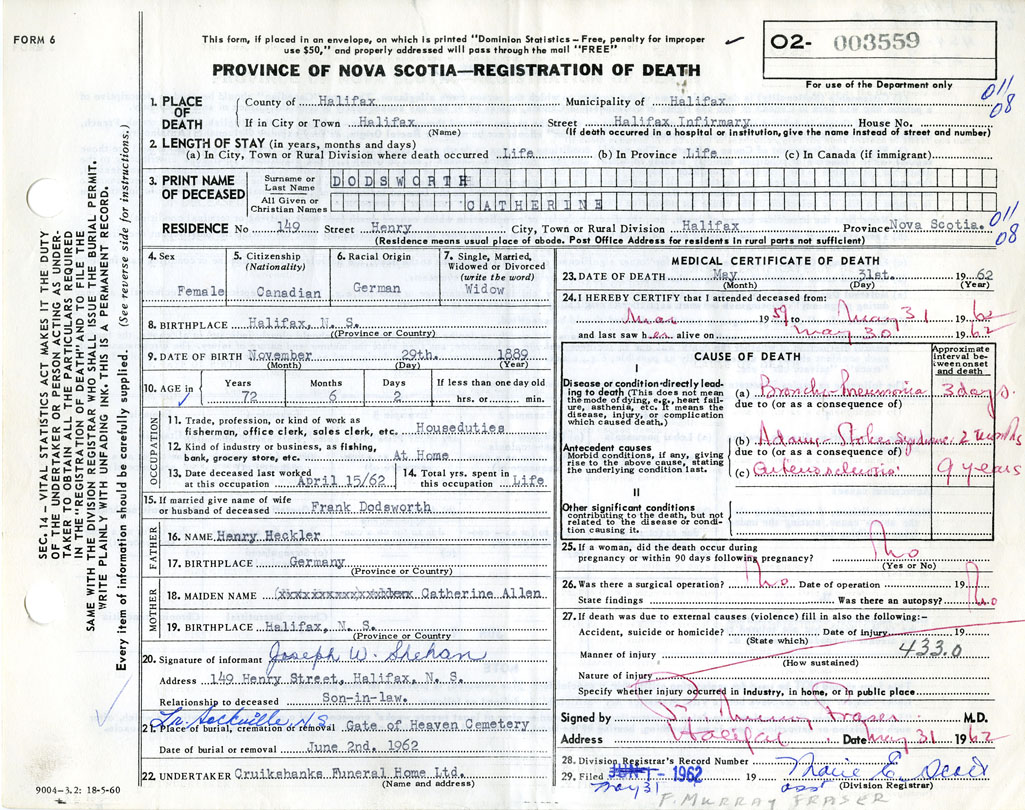 FORM 6
This form, if placed in an envelope, on which is printed "Dominion Statistics – Free, penalty for improper
use $50," and properly addressed will pass through the mail "FREE"
O2- 003559
For use of the Department only
PROVINCE OF NOVA SCOTIA—REGISTRATION OF DEATH
011
08
1. PLACE OF DEATH
County of Halifax Municipality of Halifax
If in City or Town Halifax Street Halifax Infirmary House No.
(Name) (If death occurred in a hospital or institution, give the name instead of street and number)
2. LENGTH OF STAY (in years, months and days)
(a) In City, Town or Rural Division where death occurred Life (b) In Province Life (c) In Canada (if immigrant)
3. PRINT NAME OF DECEASED
Surname or Last Name DODSWORTH
All Given or Christian Names CATHERINE
RESIDENCE No 149 Street Henry City, Town or Rural Division Halifax Province Nova Scotia.
(Residence means usual place of abode. Post Office Address for residents in rural parts not sufficient)
011
08
SEC. 14 – VITAL STATISTICS ACT MAKES IT THE DUTY
OF THE UNDERTAKER OR PERSON ACTING AS UNDER-
TAKER TO OBTAIN ALL THE PARTICULARS REQUIRED
IN THE "REGISTRATION OF DEATH" AND TO FILE THE
SAME WITH THE DIVISION REGISTRAR WHO SHALL ISSUE THE BURIAL PERMIT.
WRITE PLAINLY WITH UNFADING INK. THIS IS A PERMANENT RECORD.
Every item of information should be carefully supplied. (See reverse side for instructions.)
4. Sex
Female
5. Citizenship
(Nationality)
Canadian
6. Racial Origin
German
7. Single, Married,
Widowed or Divorced
(write the word)
Widow
8. BIRTHPLACE Halifax, N. S.
(Province or Country)
9. DATE OF BIRTH November 29th. 1889
(Month) (Day) (Year)
10. AGE in
Years Months Days If less than one day old
72 6 2 hrs. or min.
OCCUPATION
11. Trade, profession, or kind of work as
fisherman, office clerk, sales clerk, etc. Houseduties
12. Kind of industry or business, as fishing,
bank, grocery store, etc. At Home
13. Date deceased last worked
at this occupation April 15/62
14. Total yrs. spent in
this occupation Life
15. If married give name of wife
or husband of deceased Frank Dodsworth
FATHER
16. NAME Henry Heckler
17. BIRTHPLACE Germany
(Province or Country)
MOTHER
18. MAIDEN NAME Catherine Allen
19. BIRTHPLACE Halifax, N. S.
(Province or Country)
20. Signature of informant Joseph W. Shehan
Address 149 Henry Street, Halifax, N. S.
Relationship to deceased Son-in-law.
Sackville, N.S
21. Place of burial, cremation or removal Gate of Heaven Cemetery
Date of burial or removal June 2nd. 1962
22. UNDERTAKER Cruikshanks Funeral Home Ltd.
(Name and address)
9004-3.2: 18-5-60
MEDICAL CERTIFICATE OF DEATH
23. DATE OF DEATH May 31st. 1962
(Month) (Day) (Year)
24. I HEREBY CERTIFY that I attended deceased from:
Mar 1959 to May 31 1962
and last saw her alive on May 30 1962
CAUSE OF DEATH
Approximate
interval be-
tween onset
and death
I
Disease or condition directly lead-
ing to death (This does not mean
the mode of dying, e.g., heart fail-
ure, asthenia, etc. It means the
disease, injury, or complication
which caused death.)
(a) Broncho Pneumonia 3 days.
due to (or as a consequence of)
Antecedent causes
Morbid conditions, if any, giving
rise to the above cause, stating
the underlying condition last.
(b) Adams Stokes Syndrome 2 months
due to (or as a consequence of)
(c) Arteriosclerosis 9 years
II
Other significant conditions
contributing to the death, but not
related to the disease or condi-
tion causing it.
25. If a woman, did the death occur during
pregnancy or within 90 days following pregnancy? No
(Yes or No)
26. Was there a surgical operation? No Date of operation 19
State findings Was there an autopsy? No
27. If death was due to external causes (violence) fill in also the following:–
Accident, suicide or homicide? Date of injury 19
(State which)
Manner of injury 433.0
(How sustained)
Nature of injury
Specify whether injury occurred in industry, in home, or in public place
Signed by F. Murray Fraser M.D.
Address Halifax Date May 31 1962
28. Division Registrar's Record Number
29. Filed JUN 1 - 1962 19 Marie E.
May 31 ass (Division Registrar)
F. MURRAY FRASER